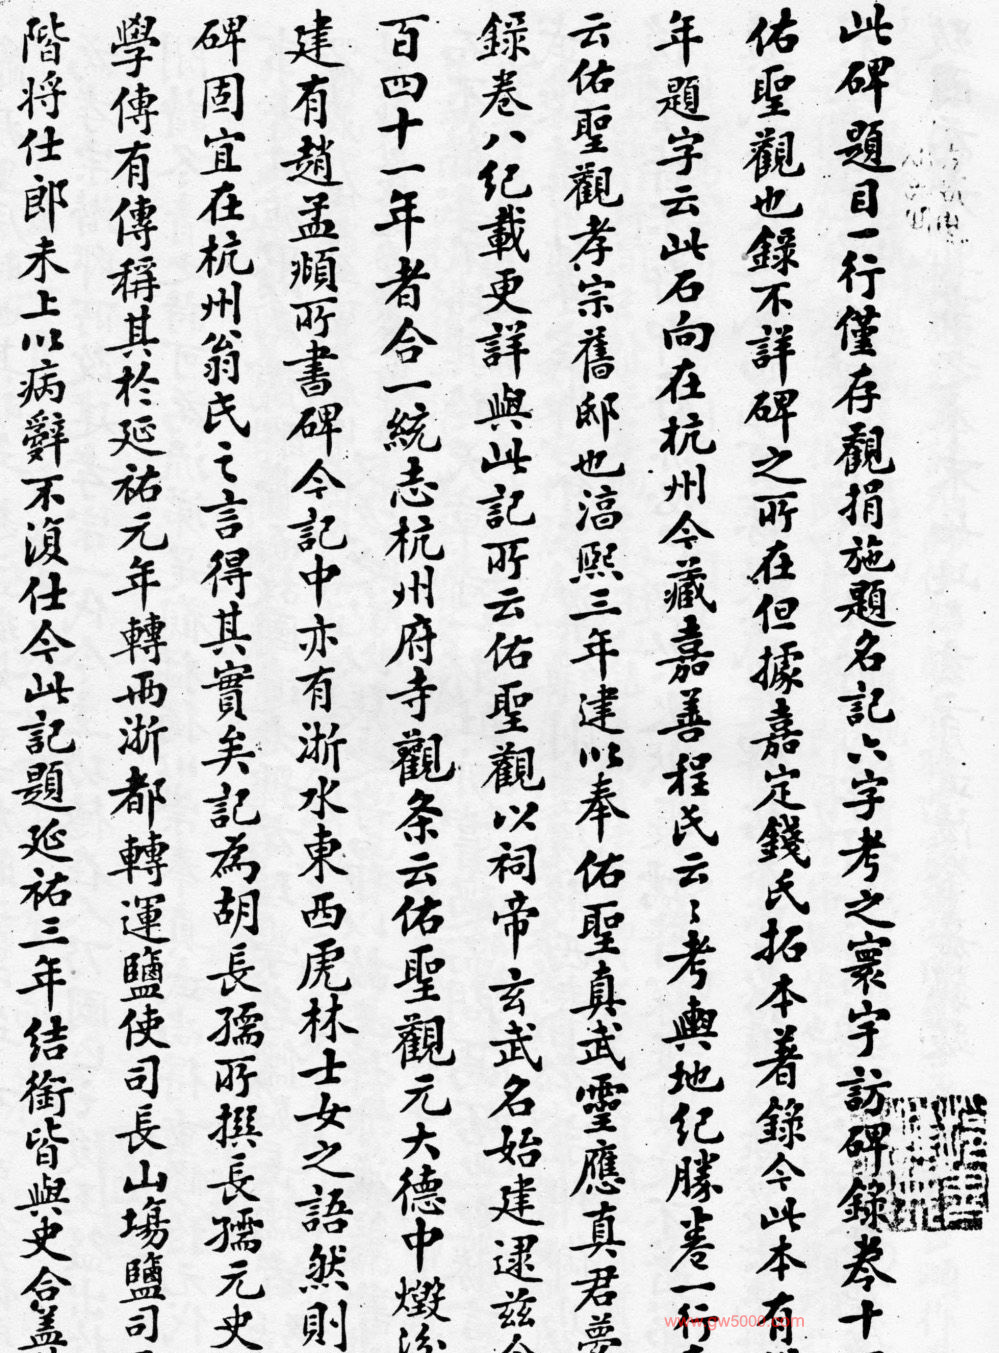 此碑題目一行僅存觀捐施題名記六字考之寰宇訪碑錄卷十
佑聖觀也錄不詳碑之所在但據嘉定錢氏拓本著錄今此本有
年題字云此石向在杭州今藏嘉善程氏云〻考輿地紀勝卷一行
云佑聖觀孝宗舊邸也淳熙三年建以奉佑聖真武靈應真君夢
錄卷八紀載更詳與此記所云佑聖觀以祠帝玄武名始建逮茲
百四十一年者合一統志杭州府寺觀条云佑聖觀元大德中燬
建有趙孟頫所書碑今記中亦有浙水東西虎林士女之語然則
碑固宜在杭州翁氏之言得其實矣記為胡長孺所撰長孺元史
學傳有傳稱其於延祐元年轉兩浙都轉運鹽使司長山場鹽司
階將仕郎未上以病辭不湏仕今此記題延祐三年結銜皆與史合蓋
www.gw5000.com